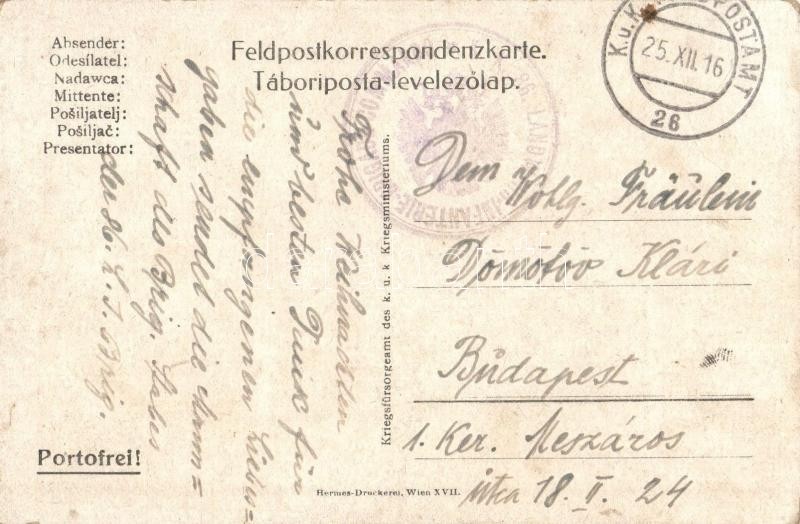 Absender:
Odesílatel:
Nadawca:
Mittente:
Pošiljatelj:
Pošiljač:
Presentator:
Feldpostkorrespondenzkarte.
Táboriposta-levelezőlap.
K.u.K. FELDPOSTAMT
25.XII.16
26
Frohe Weihnachten
und besten Dank für
die empfangenen Liebes=
gaben sendet die Mann=
schaft des Brig. Stabes
der 26. L. I. Brig.
Dem Wohlg. Fräulein
Dömötör Klári
Budapest
1. Ker. Meszáros
útca 18. II. 24
Kriegsfürsorgeamt des k. u. k Kriegsministeriums.
Portofrei!
Hermes-Druckerei, Wien XVII.